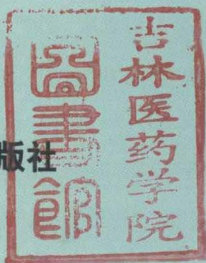 吉林医药学院
图书馆
版社